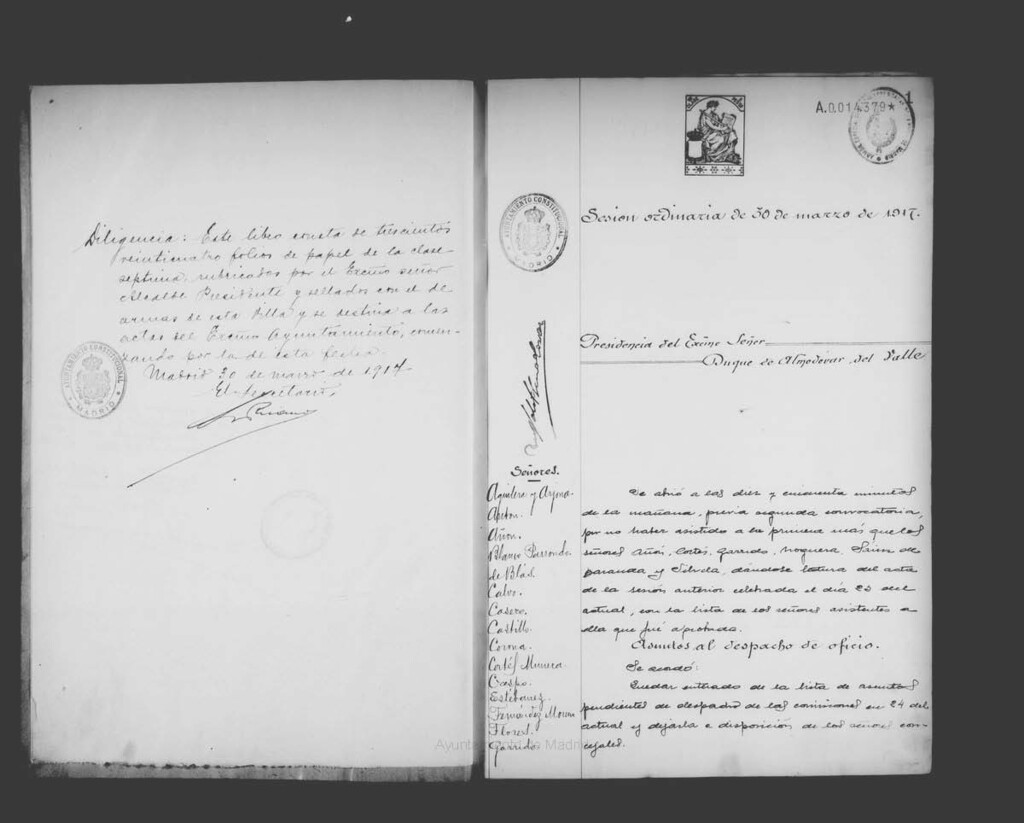 Diligencia: Este libro consta de trescientos
veinticuatro folios de papel de la clase
septima, rubricados por el Excmo señor
Alcalde Presidente y sellados con el de
armas de esta Villa y se destina a las
actas del Excmo Ayuntamiento, comen-
zando por la de esta fecha.
Madrid 30 de marzo de 1917
El Secretario,
AYUNTAMIENTO CONSTITUCIONAL
MADRID
A.0.014.379★
1
Sesion ordinaria de 30 de marzo de 1917.
AYUNTAMIENTO CONSTITUCIONAL
MADRID
Presidencia del Excmo Señor
Duque de Almodóvar del Valle
Señores.
Aguilera y Arjona
Antón.
Añón.
Blanco Parrondo
de Blas.
Calvo.
Casero.
Castillo.
Corona.
Cortés Munera.
Crespo.
Estébanez.
Fernández Moreno
Flores.
Garrido.
Se abrió a las diez y cincuenta minutos
de la mañana, previa segunda convocatoria,
por no haber asistido a la primera más que los
señores Añón, Cortés, Garrido, Noguera, Sáinz de
Baranda y Silvela, dándose lectura del acta
de la sesión anterior celebrada el día 23 del
actual, con la lista de los señores asistentes a
ella que fué aprobada.
Asuntos al despacho de oficio.
Se acordó:
Quedar enterado de la lista de asuntos
pendientes de despacho de las comisiones en 24 del
actual y dejarla a disposición de los señores con-
cejales.